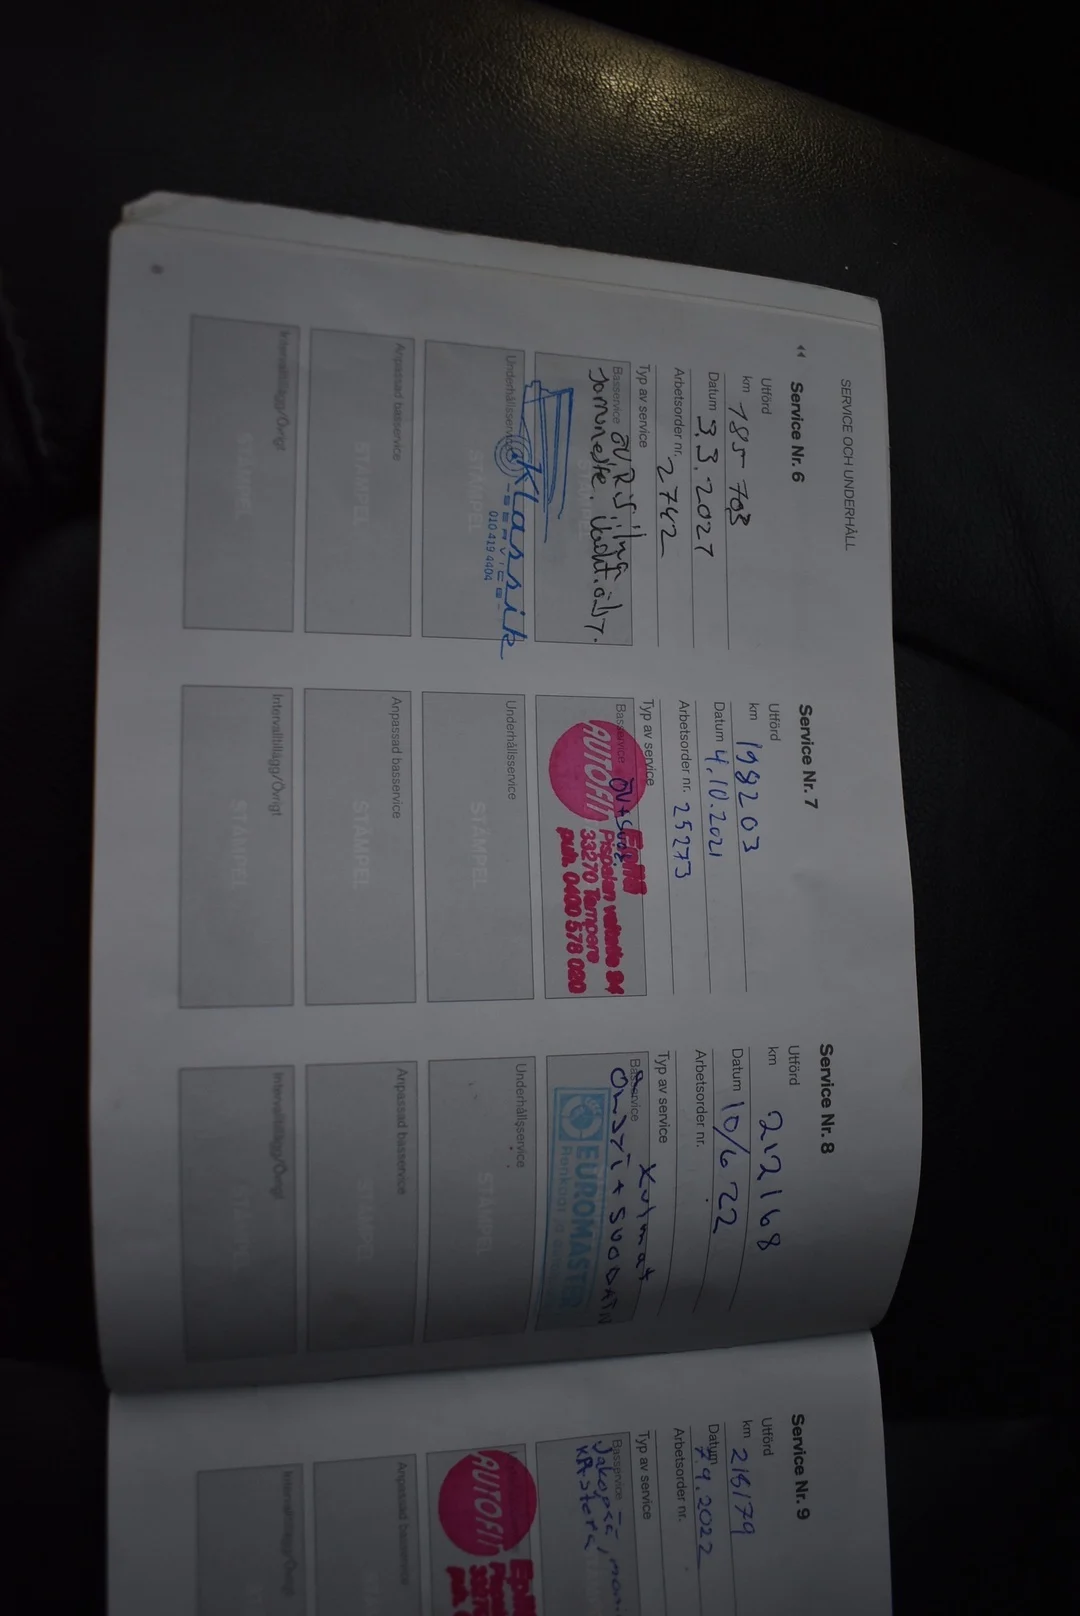 SERVICE OCH UNDERHÅLL
◂◂ Service Nr. 6
Utförd
km 185 703
Datum 3.3.2021
Arbetsorder nr. 2742
Typ av service
Basservice
STÄMPEL
Underhållsservice
STÄMPEL
Klassik
-SERVICE-
010 419 4404
Anpassad basservice
STÄMPEL
Intervalltillägg/Övrigt
STÄMPEL
8
Service Nr. 7
Utförd
km 198203
Datum 4.10.2021
Arbetsorder nr. 25273
Typ av service
Basservice
AUTOFIT
33270 Tampere
puh. 0400 578 080
Underhållsservice
STÄMPEL
Anpassad basservice
STÄMPEL
Intervalltillägg/Övrigt
STÄMPEL
Service Nr. 8
Utförd
km 212168
Datum 10/6 22
Arbetsorder nr.
Typ av service
Basservice
+ SUODATIN
EUROMASTER
Underhållsservice
STÄMPEL
Anpassad basservice
STÄMPEL
Intervalltillägg/Övrigt
STÄMPEL
Service Nr. 9
Utförd
km 216179
Datum 7.9.2022
Arbetsorder nr.
Typ av service
Basservice
Jakopää,
AUTOFIT
Anpassad basservice
Intervalltillägg/Övrigt